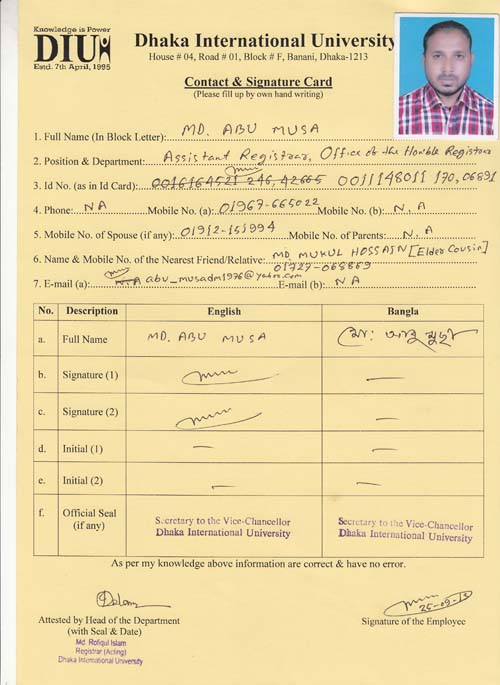 Knowledge is Power
DIU
Estd. 7th April, 1995
Dhaka International University
House # 04, Road # 01, Block # F, Banani, Dhaka-1213
Contact & Signature Card
(Please fill up by own hand writing)
1. Full Name (In Block Letter): MD. ABU MUSA
2. Position & Department: Assistant Registrar, Office of the Honble Registrar
3. Id No. (as in Id Card): 0011148011 170, 06891
4. Phone: NA Mobile No. (a): 01967-665022 Mobile No. (b): N, A
5. Mobile No. of Spouse (if any): 01912-151994 Mobile No. of Parents: N, A
6. Name & Mobile No. of the Nearest Friend/Relative: MD. MUKUL HOSSAIN [Elder Cousin]
01727-068869
7. E-mail (a): N.A abu_musadm1976@yahoo.com E-mail (b): N A
No. Description English Bangla
a. Full Name MD. ABU MUSA মো: আবু মুছা
b. Signature (1) —
c. Signature (2) —
d. Initial (1) — —
e. Initial (2) — —
f. Official Seal (if any) Secretary to the Vice-Chancellor Dhaka International University Secretary to the Vice-Chancellor Dhaka International University
As per my knowledge above information are correct & have no error.
Attested by Head of the Department
(with Seal & Date)
Md. Rofiqul Islam
Registrar (Acting)
Dhaka International University
Signature of the Employee